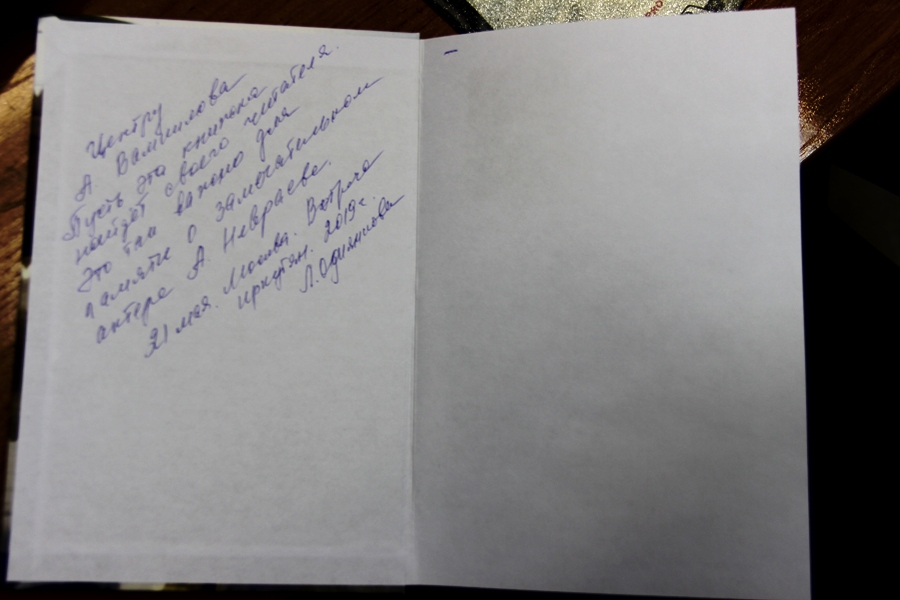 Центру
А. Вампилова
Пусть эта книжка
найдёт своего читателя.
Это так важно для
памяти о замечательном
актере А. Невраеве.
21 мая. Москва. Встреча
иркутян. 2019г.